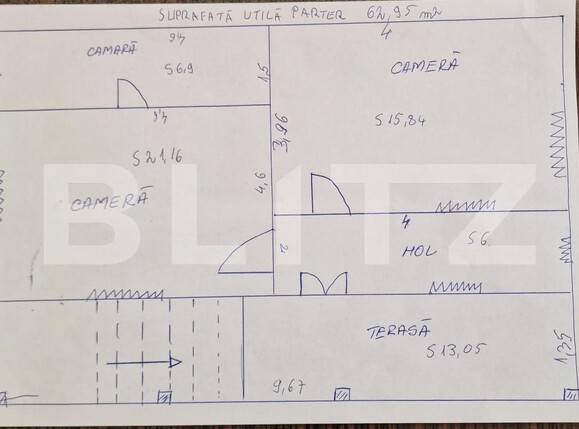 SUPRAFAȚĂ UTILĂ PARTER 62,95 m2
4,6
4
CAMARĂ
S6,9
1,5
CAMERĂ
S15,84
3,96
4,6
S21,16
4,6
CAMERĂ
4
HOL
S6
2
TERASĂ
S13,05
1,35
9,67
BLITZ